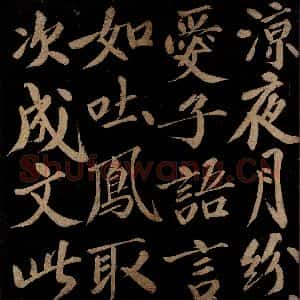 凉夜月紛
愛子語言
如吐鳳取
次成文此
Shufawang.cn